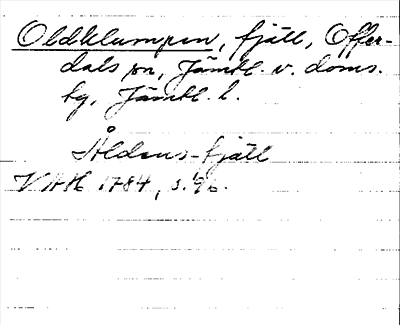 Oldklumpen, fjäll, Offer-
dals sn, Jämtl. v. doms.
hg, Jämtl. l.
Åldens-fjäll
VAH 1784, s. 96.